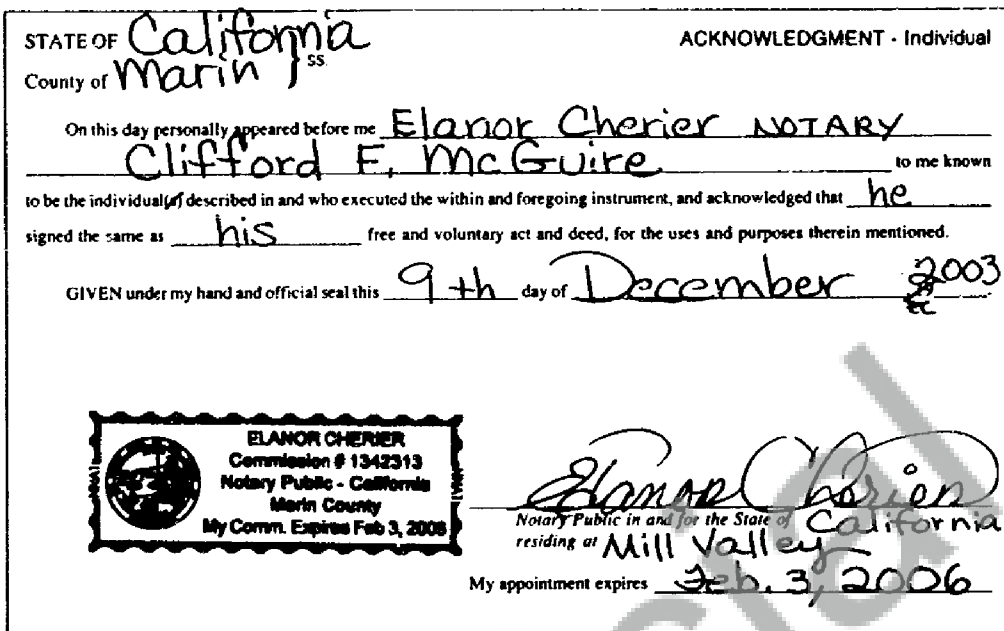 STATE OF California
ACKNOWLEDGMENT - Individual
County of Marin } SS.
On this day personally appeared before me Elanor Cherier NOTARY
Clifford F. McGuire to me known
to be the individual(s) described in and who executed the within and foregoing instrument, and acknowledged that he
signed the same as his free and voluntary act and deed, for the uses and purposes therein mentioned.
GIVEN under my hand and official seal this 9th day of December 2003
EC
ELANOR CHERIER
Commission # 1342313
Notary Public - California
Marin County
My Comm. Expires Feb 3, 2006
Elanor Cherier
Notary Public in and for the State of California
residing at Mill Valley
My appointment expires Feb. 3, 2006